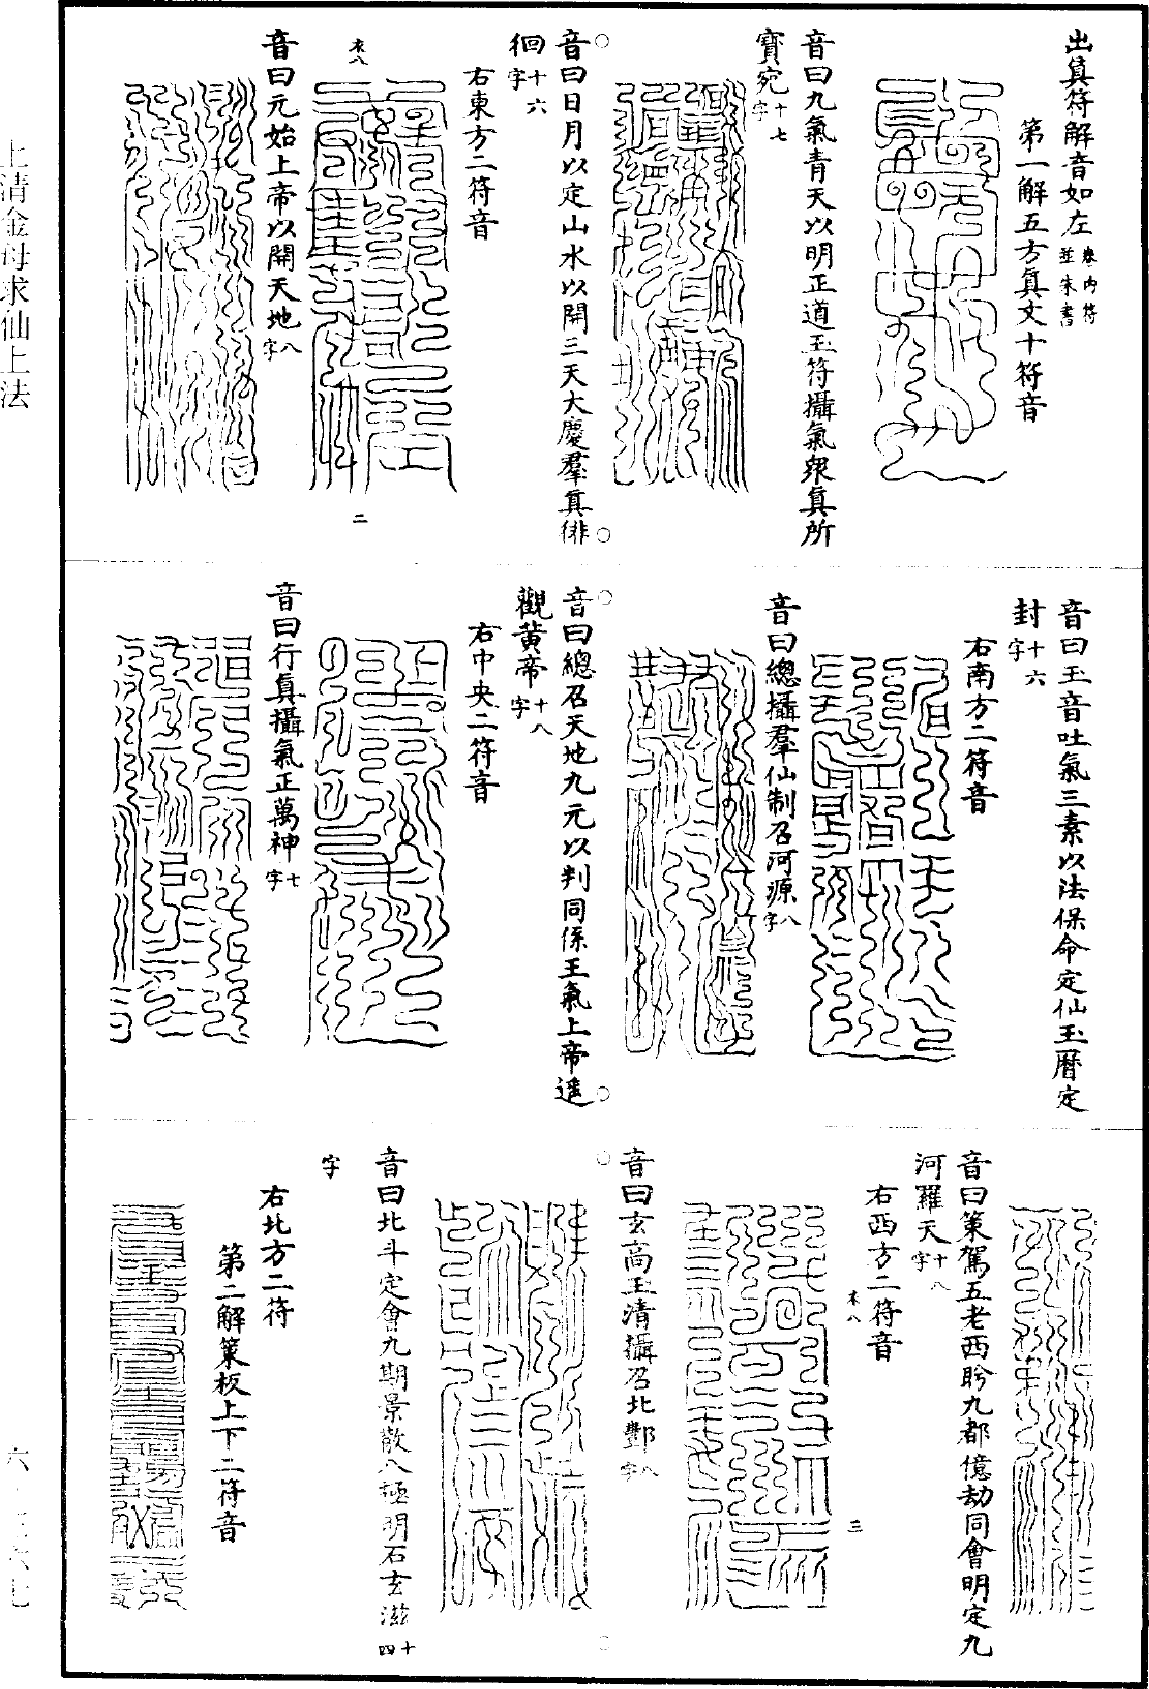 出真符解音如左卷內符並朱書
第一解五方真文十符音
音曰九氣青天以明正道玉符攝氣衆真所
寶宛十七字
音曰日月以定山水以開三天大慶羣真徘
徊十六字
右東方二符音
衣八
二
音曰元始上帝以開天地八字
音曰玉音吐氣三素以法保命定仙玉曆定
封十六字
右南方二符音
音曰總攝羣仙制召河源八字
音曰總召天地九元以判同係玉氣上帝遥
觀黃帝十八字
右中央二符音
音曰行真攝氣正萬神七字
音曰策駕五老西盻九都億劫同會明定九
河羅天十八字
右西方二符音
衣八
三
音曰玄高玉清攝召北酆八字
音曰北斗定會九期景散八極明石玄滋十四
字
右北方二符
第二解策板上下二符音
上清金母求仙上法